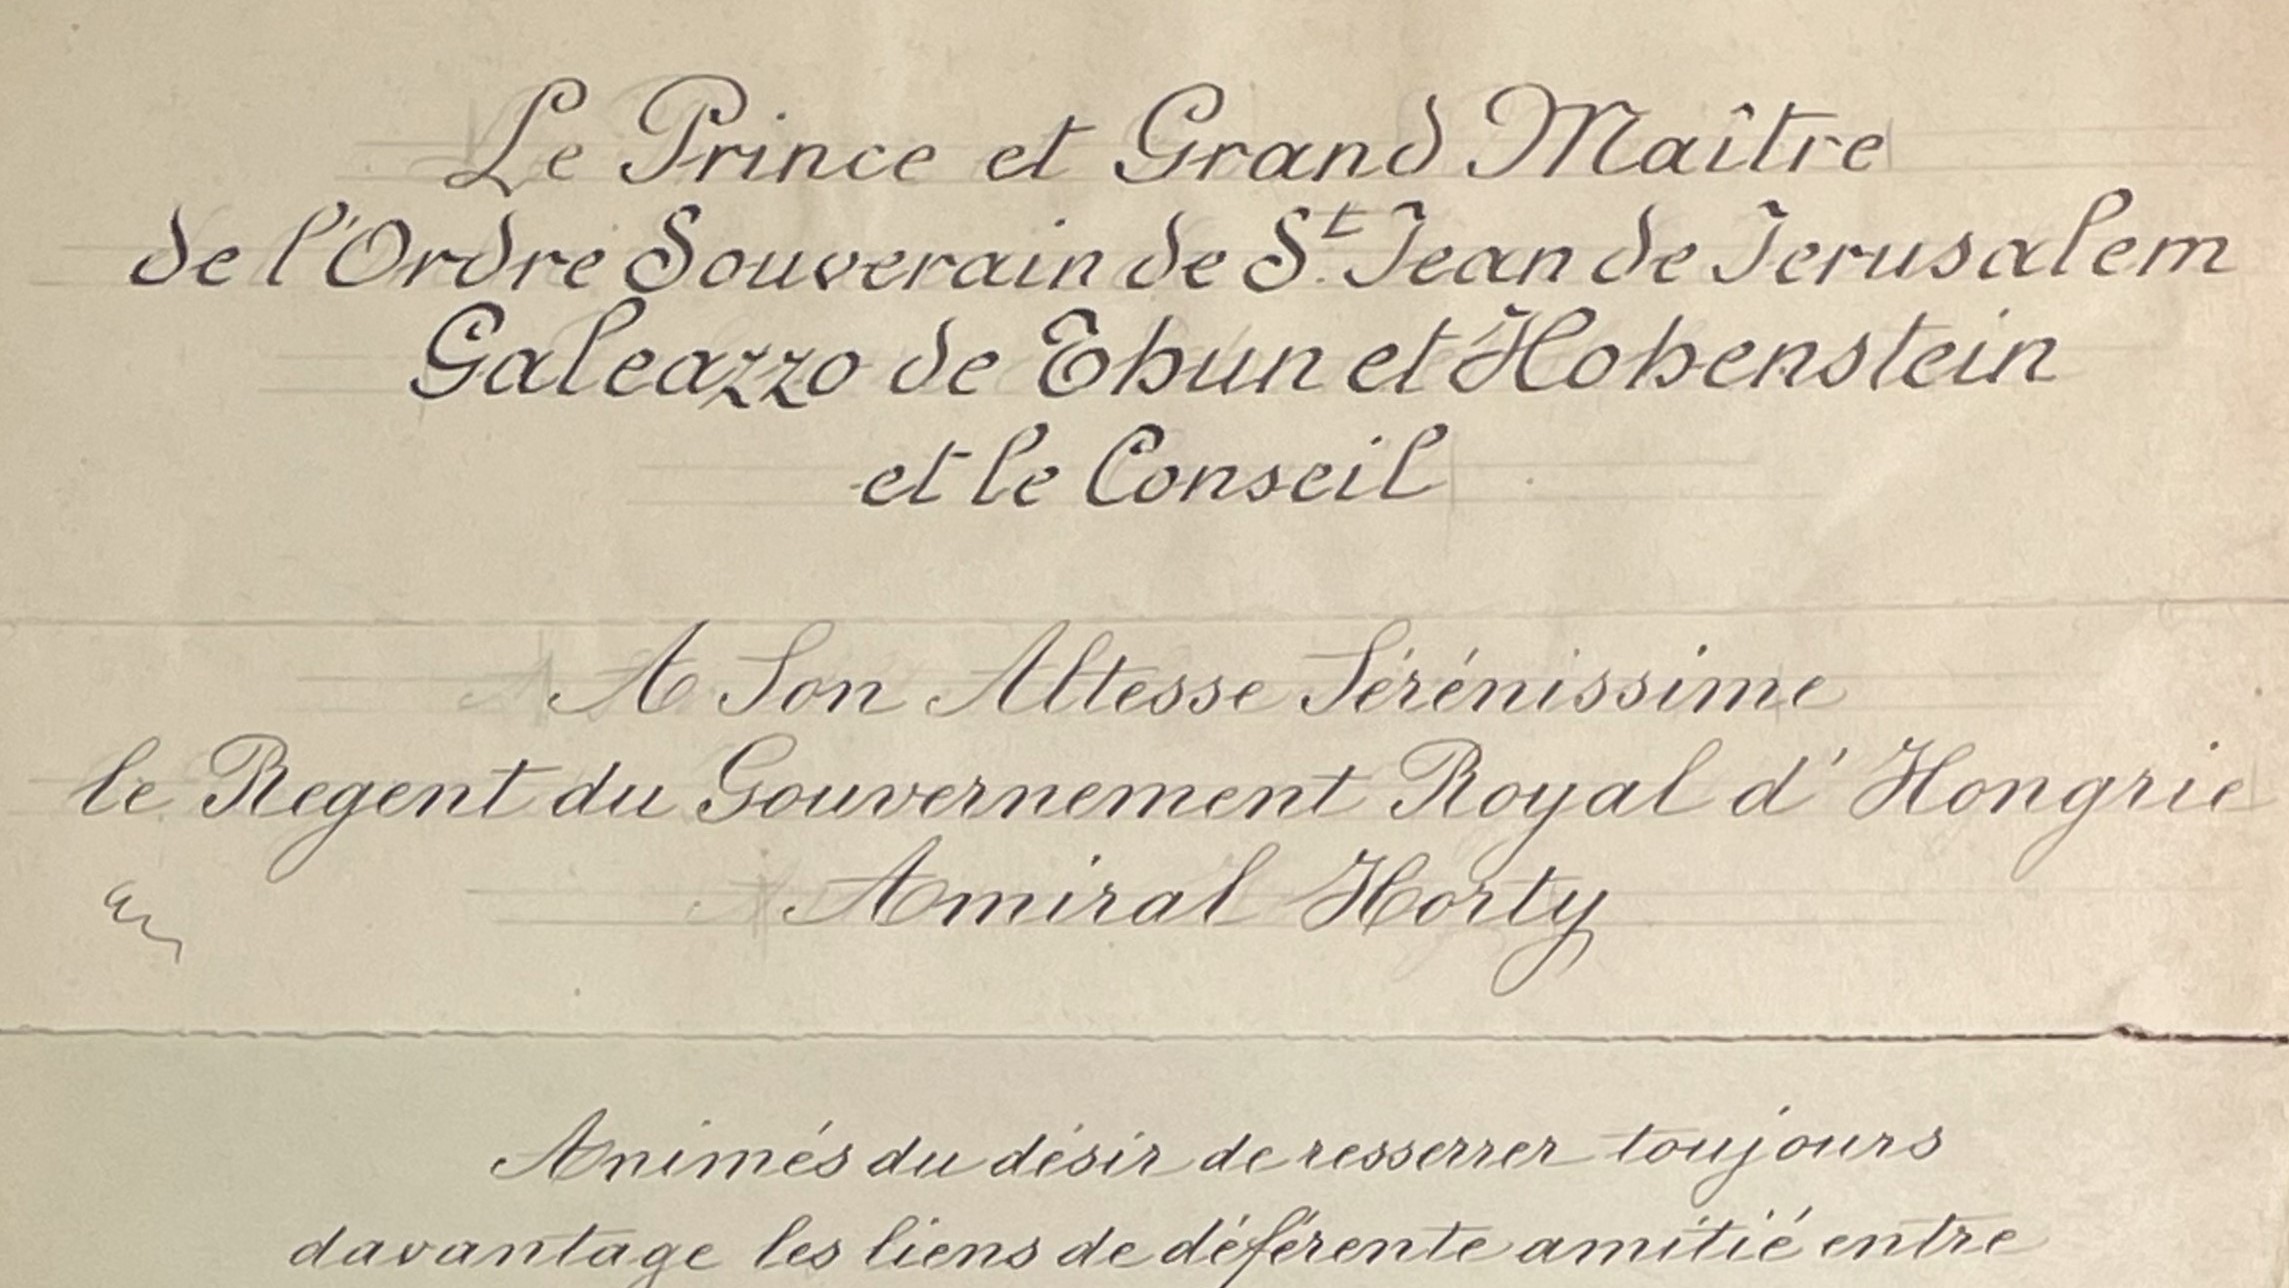 Le Prince et Grand Maître
de l'Ordre Souverain de St. Jean de Jerusalem
Galeazzo de Thun et Hohenstein
et le Conseil
A Son Altesse Sérénissime
le Regent du Gouvernement Royal d'Hongrie
Amiral Horty
Animés du désir de resserrer toujours
davantage les liens de déférente amitié entre